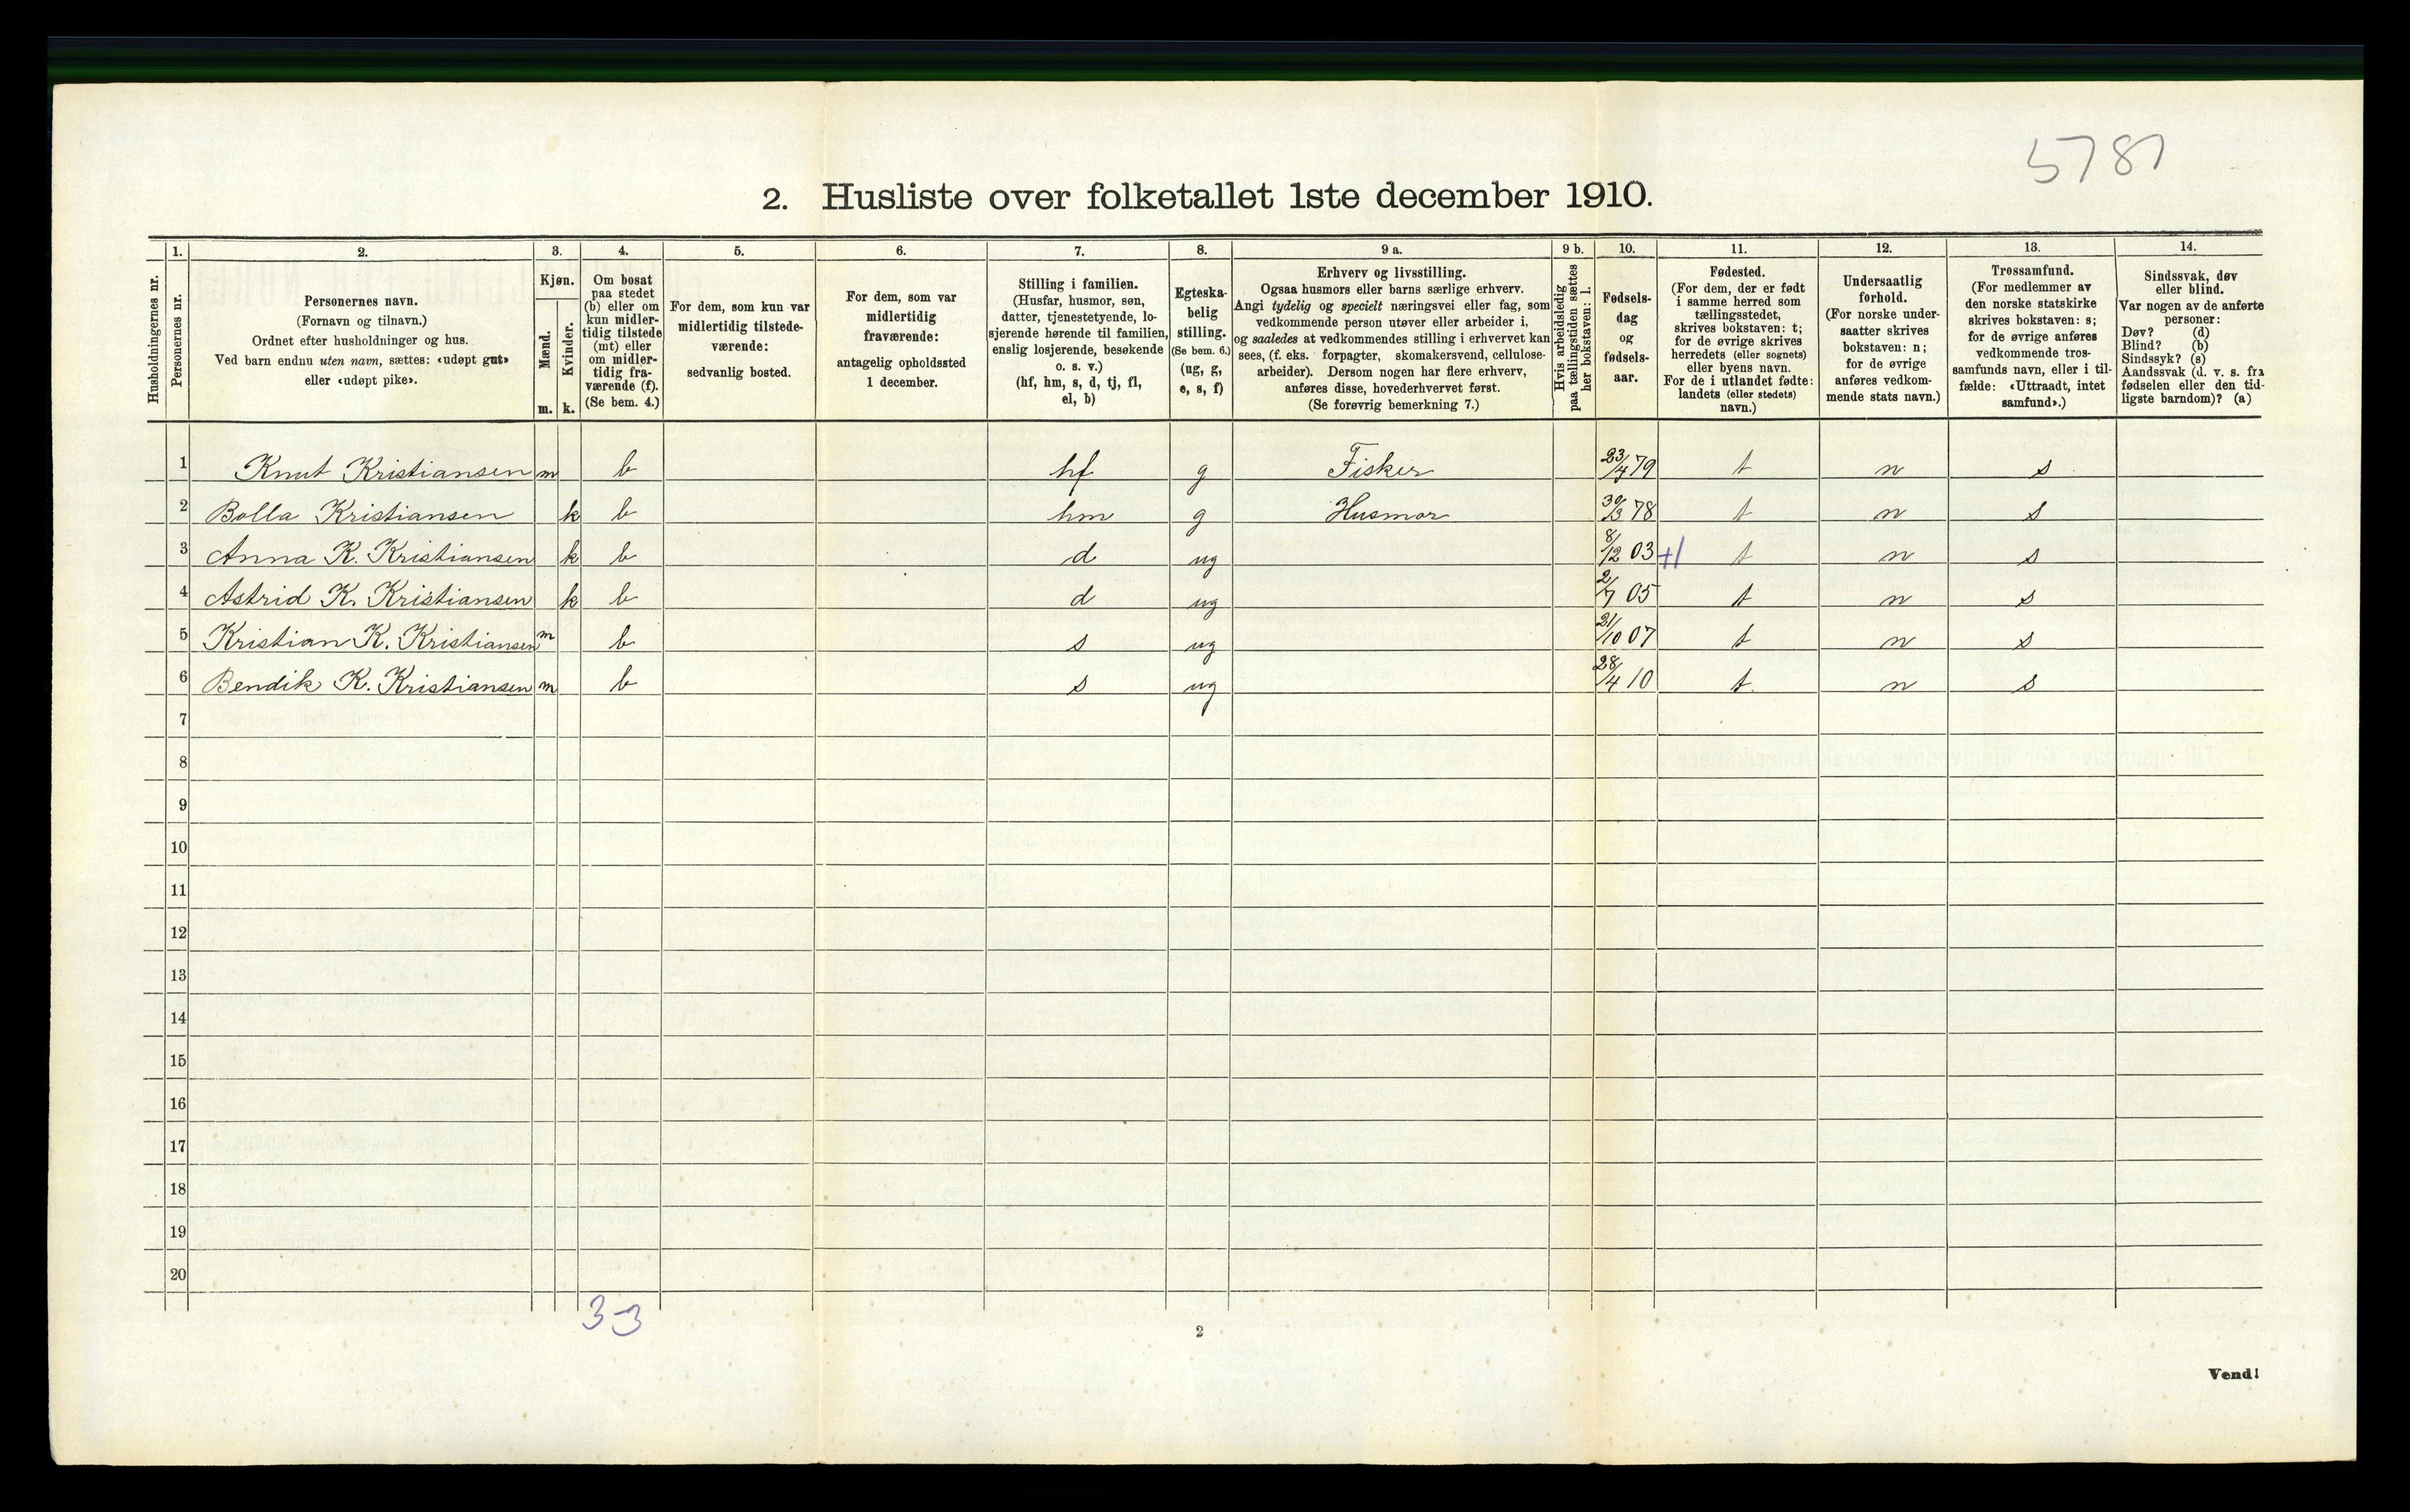 5787
2. Husliste over folketallet 1ste december 1910.
Husholdningernes nr.
1.
Personernes nr.
2.
Personernes navn.
(Fornavn og tilnavn.)
Ordnet efter husholdninger og hus.
Ved barn endnu uten navn, sættes: «udøpt gut»
eller «udøpt pike».
3.
Kjøn.
Mænd.
Kvinder.
m. k.
4.
Om bosat
paa stedet
(b) eller om
kun midler-
tidig tilstede
(mt) eller
om midler-
tidig fra-
værende (f).
(Se bem. 4.)
5.
For dem, som kun var
midlertidig tilstede-
værende:
sedvanlig bosted.
6.
For dem, som var
midlertidig
fraværende:
antagelig opholdssted
1 december.
7.
Stilling i familien.
(Husfar, husmor, søn,
datter, tjenestetyende, lo-
sjerende hørende til familien,
enslig losjerende, besøkende
o. s. v.)
(hf, hm, s, d, tj, fl,
el, b)
8.
Egteska-
belig
stilling.
(Se bem. 6.)
(ug, g,
e, s, f)
9 a.
Erhverv og livsstilling.
Ogsaa husmors eller barns særlige erhverv.
Angi tydelig og specielt næringsvei eller fag, som
vedkommende person utøver eller arbeider i,
og saaledes at vedkommendes stilling i erhvervet kan
sees, (f. eks. forpagter, skomakersvend, cellulose-
arbeider). Dersom nogen har flere erhverv,
anføres disse, hovederhvervet først.
(Se forøvrig bemerkning 7.)
9 b.
Hvis arbeidsledig
paa tællingstiden sættes
her bokstaven: l.
10.
Fødsels-
dag
og
fødsels-
aar.
11.
Fødested.
(For dem, der er født
i samme herred som
tællingsstedet,
skrives bokstaven: t;
for de øvrige skrives
herredets (eller sognets)
eller byens navn.
For de i utlandet fødte:
landets (eller stedets)
navn.)
12.
Undersaatlig
forhold.
(For norske under-
saatter skrives
bokstaven: n;
for de øvrige
anføres vedkom-
mende stats navn.)
13.
Trossamfund.
(For medlemmer av
den norske statskirke
skrives bokstaven: s;
for de øvrige anføres
vedkommende tros-
samfunds navn, eller i til-
fælde: «Uttraadt, intet
samfund».)
14.
Sindssvak, døv
eller blind.
Var nogen av de anførte
personer:
Døv? (d)
Blind? (b)
Sindssyk? (s)
Aandssvak (d. v. s. fra
fødselen eller den tid-
ligste barndom)? (a)
1 Knut Kristiansen m b hf g Fisker 23/4 79 t n s
2 Bolla Kristiansen k b hm g Husmor 30/3 78 t n s
3 Anna K. Kristiansen k b d ug 8/12 03 +1 t n s
4 Astrid K. Kristiansen k b d ug 2/7 05 t n s
5 Kristian K. Kristiansen m b s ug 21/10 07 t n s
6 Bendik K. Kristiansen m b s ug 28/4 10 t n s
7
8
9
10
11
12
13
14
15
16
17
18
19
20
3-3
2
Vend!